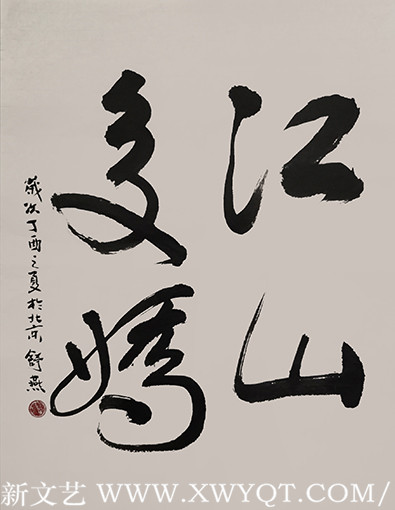 江山
多嬌
歲次丁酉之夏於北京 舒燕
新文艺 WWW.XWYQT.COM/